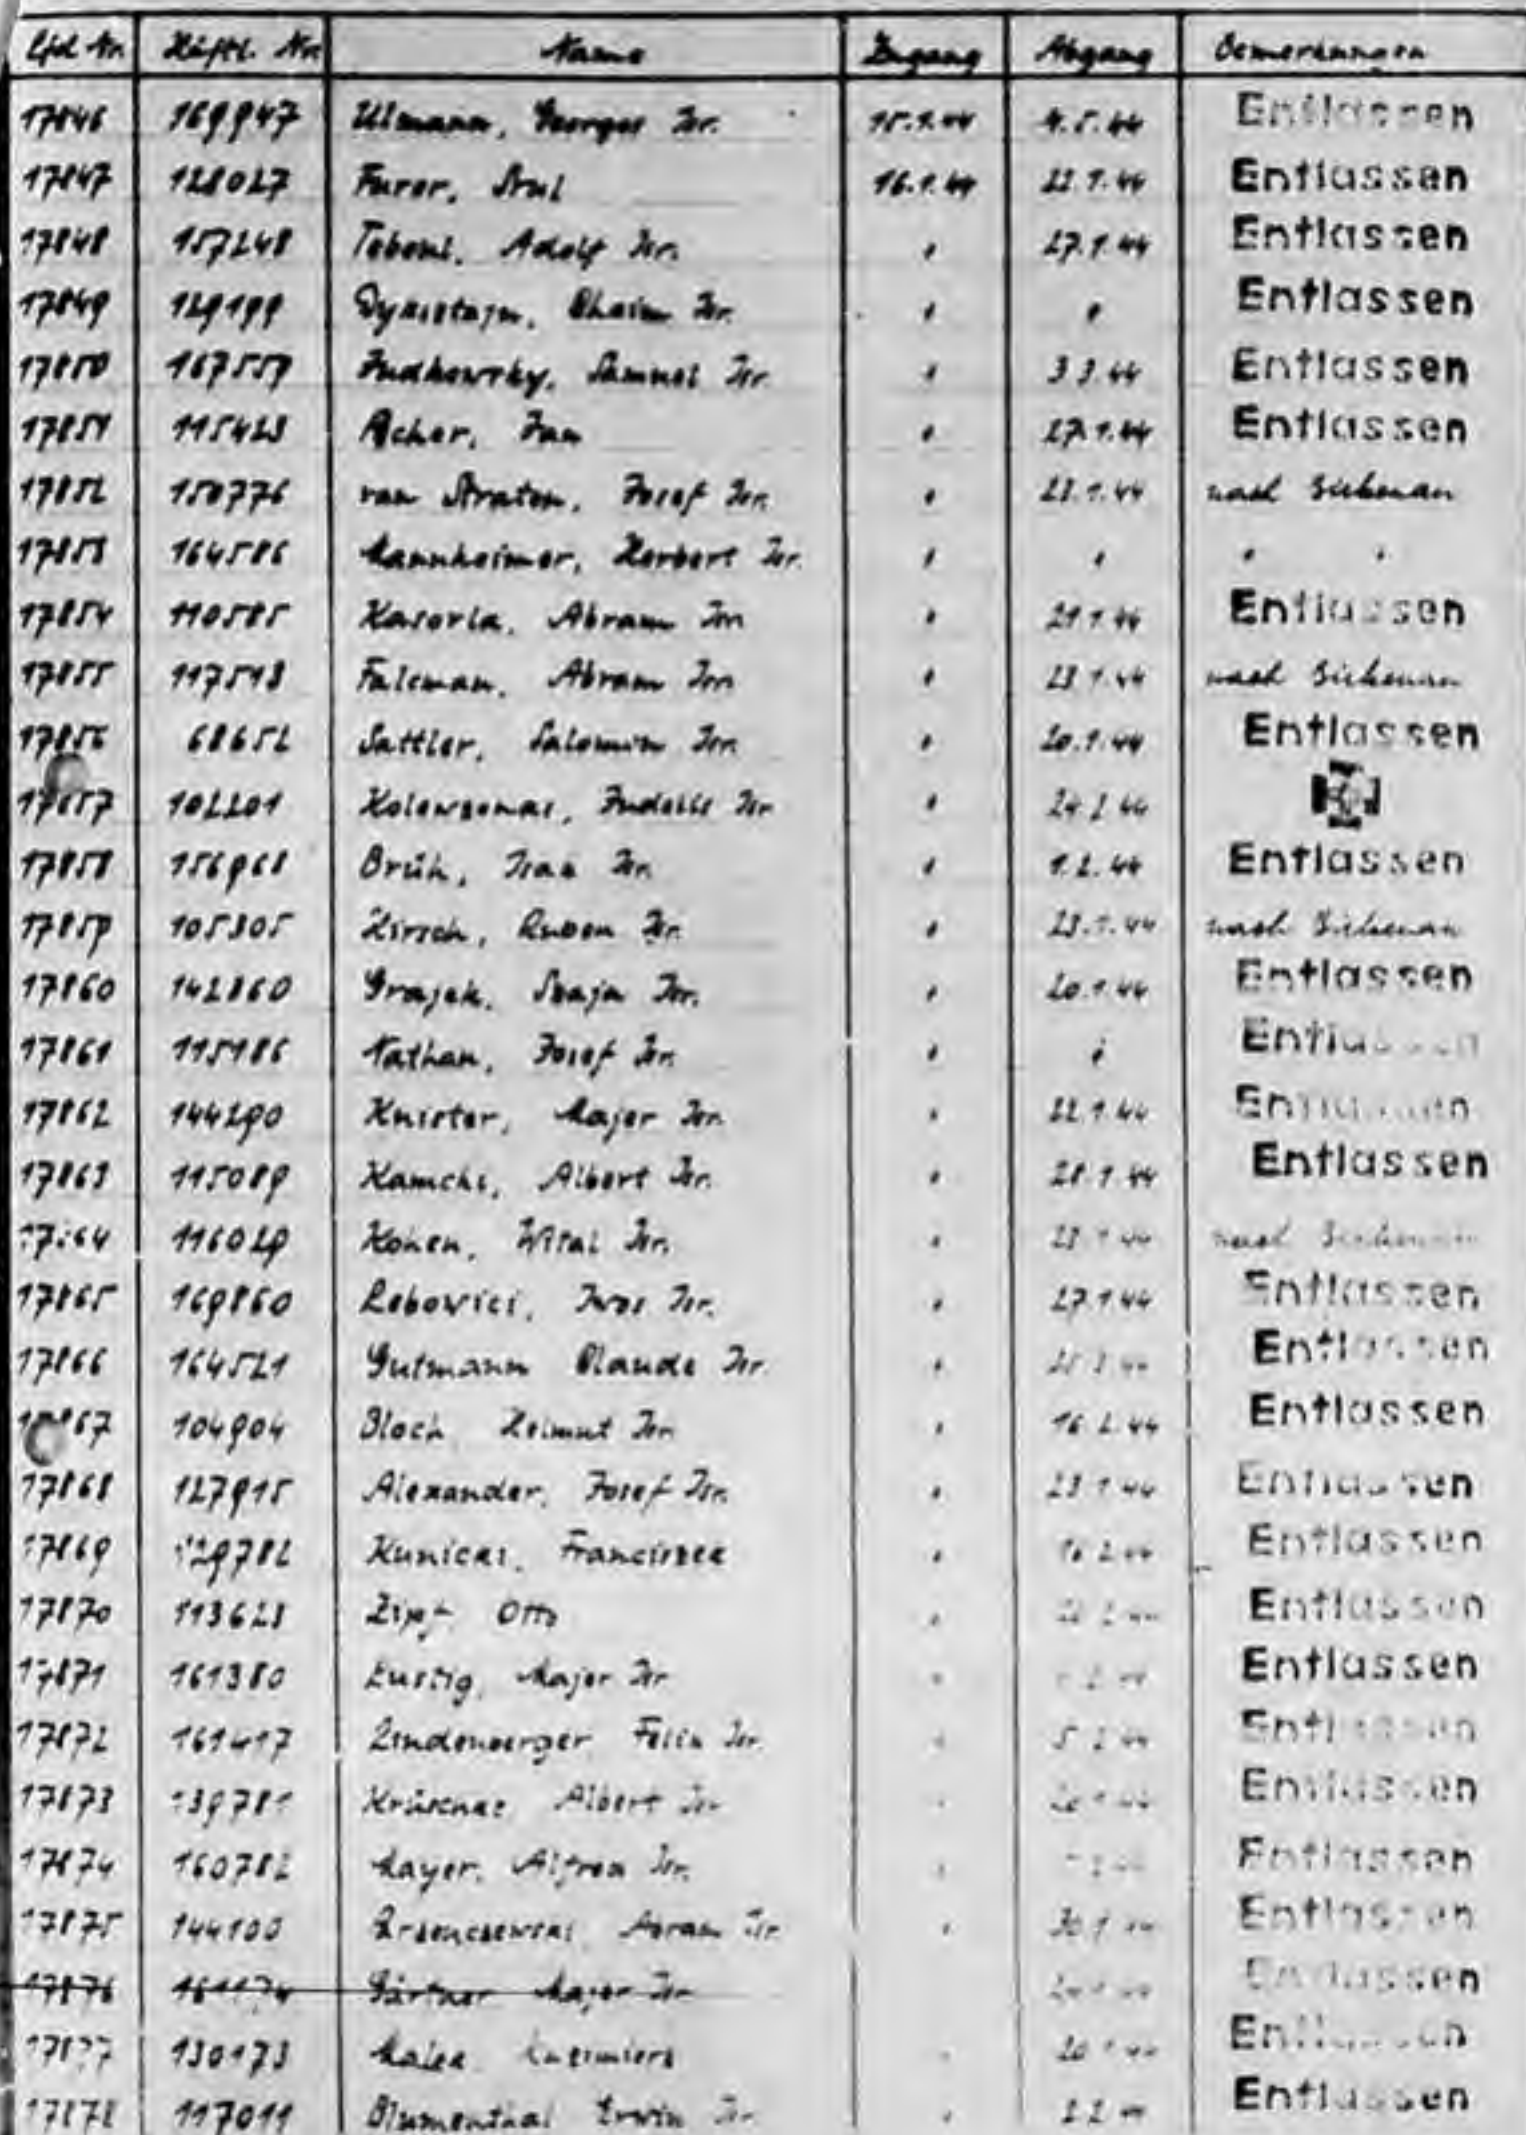 Lfd Nr. Häftl. Nr. Name Zugang Abgang Bemerkungen
17846 169947 Ulmann, Georges Isr. 15.1.44 4.5.44 Entlassen
17847 128027 Furer, Srul 16.1.44 22.1.44 Entlassen
17848 157248 Adolf Isr. " 27.1.44 Entlassen
17849 129199 Chaim Isr. " " Entlassen
17850 167557 Judkowsky, Samuel Isr. " 3.3.44 Entlassen
17851 115423 Acher, Jan " 27.1.44 Entlassen
17852 150776 van Straten, Josef Isr. " 23.1.44 nach Birkenau
17853 164586 Mannheimer, Herbert Isr. " " " "
17854 110585 Kasorla, Abram Isr. " 21.1.44 Entlassen
17855 117513 Falcman, Abram Isr. " 23.1.44 nach Birkenau
17856 68652 Sattler, Salomon Isr. " 20.1.44 Entlassen
17857 102201 Isr. " 24.2.44
17858 156968 Brüh, Isaa Isr. " 1.2.44 Entlassen
17859 105305 Hirsch, Ruben Isr. " 23.1.44 nach Birkenau
17860 142860 Grajek, Szaja Isr. " 20.1.44 Entlassen
17861 115186 Nathan, Josef Isr. " " Entlassen
17862 144290 Knister, Majer Isr. " 22.1.44 Entlassen
17863 115089 Kamchi, Albert Isr. " 28.1.44 Entlassen
17864 116029 Kohen, Wital Isr. " 23.1.44 nach Birkenau
17865 169860 Lebovici, Isr. " 27.1.44 Entlassen
17866 164521 Gutmann Claude Isr. " Entlassen
17867 104904 Bloch Helmut Isr. " 16.2.44 Entlassen
17868 127915 Alexander, Josef Isr. " 23.1.44 Entlassen
17869 129782 Kunicki, Franciszek " 16.2.44 Entlassen
17870 113623 Zipf Otto " Entlassen
17871 161380 Lustig, Majer Isr. " Entlassen
17872 161417 Lindenberger Felix Isr. " 5.2.44 Entlassen
17873 139781 Albert Isr. " 20.1.44 Entlassen
17874 160782 Mayer, Alfred Isr. " Entlassen
17875 144100 Abram Isr. " 30.1.44 Entlassen
17876 161174 Gärtner Majer Isr. Entlassen
17877 130173 Kazimierz " 20.1.44 Entlassen
17878 117011 Blumenthal Erwin Isr. " 2.2.44 Entlassen